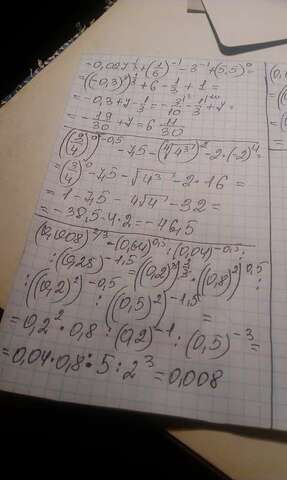 -0,027^{1/3} + (1/6)^{-1} - 3^{-1} + (5,5)^0 =
= ((-0,3)^3)^{1/3} + 6 - 1/3 + 1 =
= -0,3 + 7 - 1/3 = -3/10 - 1/3 + 7 =
= -19/30 + 7 = 6 11/30
((9/4)^0)^{-0,5} - 7,5 - (√4^3)^{-2} - 2·(-2)^4 =
= (3/4)^0 - 7,5 - √4^3 - 2·16 =
= 1 - 7,5 - 4√4 - 32 =
= -38,5 - 4·2 = -46,5
(0,008)^{2/3} · (0,64)^{0,5} : (0,04)^{-0,5} :
: (0,25)^{-1,5} = ((0,2)^3)^{2/3} · ((0,8)^2)^{0,5} :
: ((0,2)^2)^{-0,5} : ((0,5)^2)^{-1,5} =
= 0,2^2 · 0,8 : (0,2)^{-1} : (0,5)^{-3} =
= 0,04 · 0,8 : 5 : 2^3 = 0,008